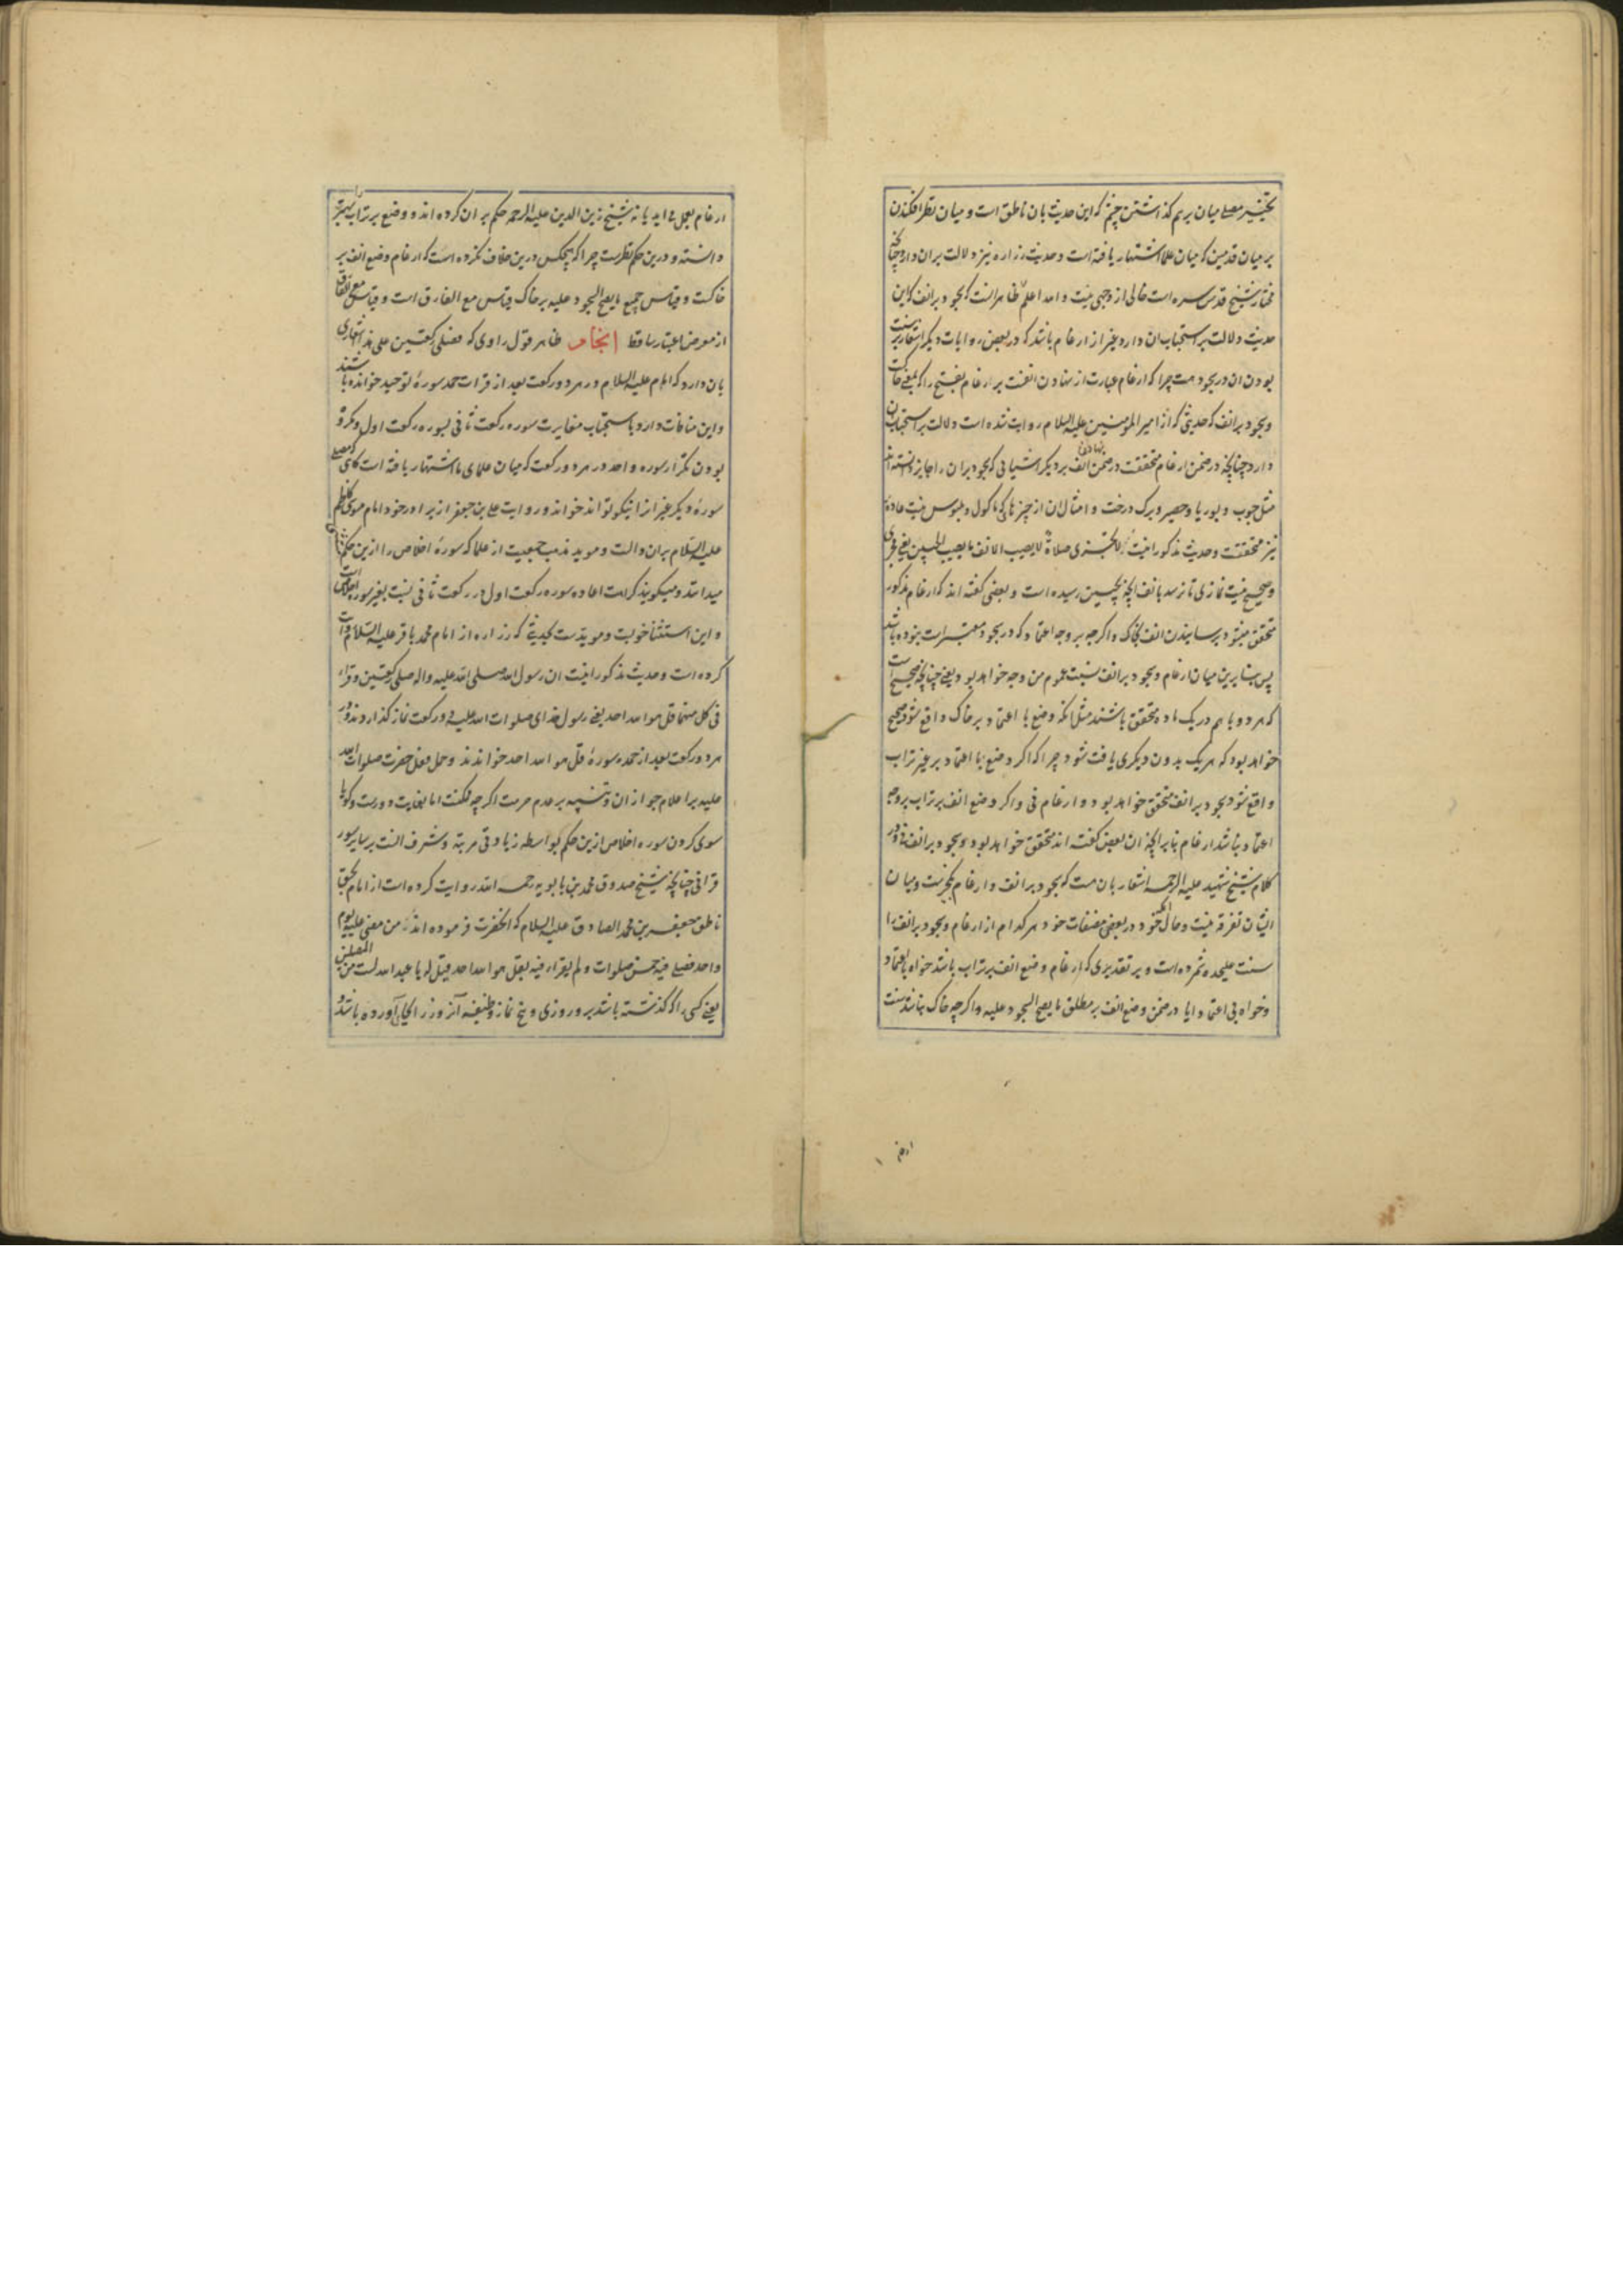 تخییر مصلی میان برهم گذاشتن چشم که این حدیث بان ناطق است و میان نظر افکندن
بر میان قدمین که میان علما اشتهار یافته است و حدیث زراره نیز دلالت بران دارد چنانچه
مختار شیخ قدس سره است خالی از وجهی نیست و الله اعلم ظاهر انست که سجود بر انف که این
حدیث دلالت بر استحباب ان دارد غیر از ارغام باشد که در بعض روایات دیگر اشعار بر سنت
بودن ان در سجود هست چرا که ارغام عبارت از نهادن انفست بر رغام بفتح را که بمعنی خاکست
و سجود بر انف که حدیثی که از امیر المومنین علیه السلام روایت شده است دلالت بر استحباب ان
دارد چنانچه در ضمن ارغام متحققست در ضمن نهادن انف بر دیگر اشیائی که سجود بران را جایز دانسته اند
مثل چوب و بوریا و حصیر و برک درخت و امثال ان از چیزهائی که ماکول و ملبوس نیست عادة
نیز متحققست و حدیث مذکور اینست لا تجزی صلاة لا یصیب الانف ما یصیب الجبین یعنی مجزی
و صحیح نیست نمازی تا نرسد بانف انچه بجبین رسیده است و بعضی گفته اند که ارغام مذکور
متحقق میشود برسانیدن انف بخاک و اگرچه بر وجه اعتماد که در سجود معتبر است نبوده باشد
پس بنابرین میان ارغام و سجود بر انف نسبت عموم من وجه خواهد بود یعنی چنانچه صحیح است
که هر دو با هم در یک ماده متحقق باشند مثل انکه وضع با اعتماد بر خاک واقع شود صحیح
خواهد بود که هر یک بدون دیگری یافت شود چرا که اگر وضع با اعتماد بر غیر تراب
واقع شود سجود بر انف متحقق خواهد بود و ارغام نی و اگر وضع انف بر تراب بر وجه
اعتماد نباشد ارغام بنا بر انچه ان بعض گفته اند متحقق خواهد بود و سجود بر انف نی و در
کلام شیخ شهید علیه الرحمه اشعار بان هست که سجود بر انف و ارغام یکچیزست و میان
ایشان تفرقه نیست و حال انکه خود در بعضی مصنفات خود هر کدام از ارغام و سجود بر انف را
سنت علیحده شمرده است و بر تقدیری که ارغام وضع انف بر تراب باشد خواه باعتماد
و خواه بی اعتماد ایا در ضمن وضع انف بر مطلق ما یصح السجود علیه و اگرچه خاک نباشد سنت
ارغام بعمل می اید یا نه شیخ زین الدین علیه الرحمه حکم بر ان کرده اند و وضع بر تراب را بهتر
دانسته و درین حکم نظرست چرا که هیچکس درین خلاف نکرده است که ارغام وضع انف بر
خاکست و قیاس جمیع ما یصح السجود علیه بر خاک قیاس مع الفارق است و قیاس مع الفارق
از معرض اعتبار ساقط انجام ظاهر قول راوی که فصلی رکعتین علی هذا اشعاری
بان دارد که امام علیه السلام در هر دو رکعت بعد از قرات حمد سورهٔ توحید خوانده باشند
و این منافات دارد با استحباب مغایرت سوره رکعت ثانی بسوره رکعت اول و مکروه
بودن تکرار سوره واحد در هر دو رکعت که میان علمای ما اشتهار یافته است گاهی که مصلی
سورهٔ دیگر غیر از اینکه تواند خواند و روایت علی بن جعفر از برادر خود امام موسی کاظم
علیه السلام بران دالست و موید مذهب جمعیست از علما که سورهٔ اخلاص را ازین حکم مستثنا
میدانند و میگویند کراهت اعاده سوره رکعت اول در رکعت ثانی نسبت بغیر سوره اخلاص است
و این استثنا خوبست و مویدست بحدیثی که زراره از امام محمد باقر علیه السلام روایت
کرده است و حدیث مذکور اینست ان رسول الله صلی الله علیه و اله صلی رکعتین و قراء
فی کل منهما قل هو الله احد یعنی رسول خدای صلوات الله علیه دو رکعت نماز گذاردند و در
هر دو رکعت بعد از حمد سورهٔ قل هو الله احد خواندند و حمل فعل حضرت صلوات الله
علیه بر اعلام جواز ان و تنبیه بر عدم حرمت اگرچه ممکنست اما بغایت دورست و گویا
سوی کردن سوره اخلاص ازین حکم بواسطه زیادتی مرتبه و شرف انست بر سایر سور
قرانی چنانچه شیخ صدوق محمد بن بابویه رحمه الله روایت کرده است از امام بحق
ناطق جعفر بن محمد الصادق علیه السلام که انحضرت فرموده اند من مضی علیه یوم
واحد فصلی فیه خمس صلوات و لم یقرا فیه بقل هو الله احد قیل له یا عبد الله لست من المصلین
یعنی کسی را که گذشته باشد برو روزی و پنج نماز وظیفه آنروز را بجای آورده باشد و